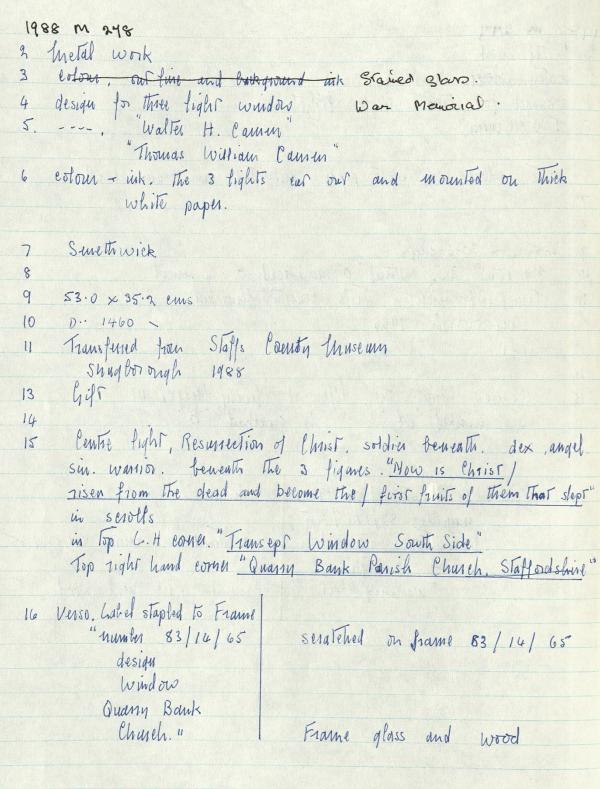 1988 M 248
2 Metal work
3 colour, out line and background ink Stained Glass.
4 design for three light window War Memorial.
5. ----, "Walter H. Camm"
"Thomas William Camm"
6 colour + ink. the 3 lights cut out and mounted on thick
white paper.
7 Smethwick
8
9 53.0 x 35.2 cms
10 D.. 1460
11 Transferred from Staffs County Museum
Shugborough 1988
13 Gift
14
15 Centre light, Resurrection of Christ. soldier beneath. dex. angel
sin. warrior. beneath the 3 figures. "Now is Christ/
risen from the dead and become the/ first fruits of them that slept"
in scrolls
in top L.H corner. "Transept Window South Side"
Top right hand corner "Quarry Bank Parish Church. Staffordshire"
16 Verso. Label stapled to Frame
"number 83/14/65 scratched on frame 83/14/65
design
Window
Quarry Bank
Church." Frame glass and wood